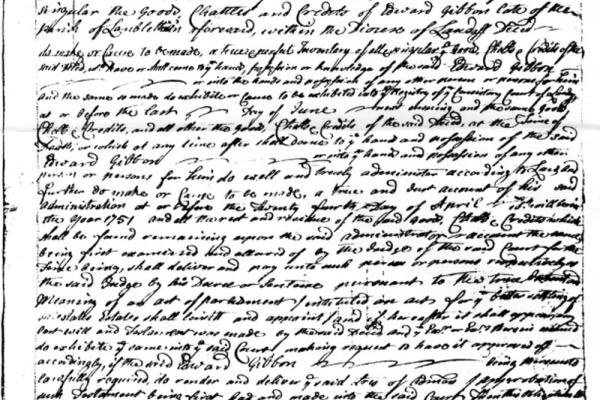 singular the Goods Chattles and Credits of Edward Gibbon late of the
Parish of within the Diocese of Landaff Deced
do make or Cause to be made, a true perfect Inventory of all singular ye Goods Chattls & Credits of the
said Deced, wch have or shall come to hand, possession or knowledge of the said Edward Gibbon
or into the hands and possession of any other person or persons for him
and the same so made do exhibite or Cause to be exhibited into ye Registry of ye Consistory Court of Landaff
at or before the last Day of June next ensuing, and the same Goods
Chattls Credits, and all other the Goods, Chattls & Credits of the said Deced, at the time of
Death, or which at any time after shall come to ye hand and possession of the said
Edward Gibbon or into ye hand and possession of any other
person or persons for him do well and truely administer according to Law, And
further do make or Cause to be made, a true and Just account of his said
administration at or before the Twenty fourth Day of April
the Year 1751 and all the rest and residue of the said Goods, Chattls & Credits which
shall be found remaining upon the said administrators account the same
being first examined and allowed of by the Judge of the said Court for the
time being, shall deliver and pay unto such person or persons respectively as
the said Judge by his Decree or Sentence pursuant to the true
Meaning of an act of parliament Intituled an act for ye better settling of
Intestates Estates shall limitt and appoint, and if hereafter it shall appear any
last will and Testament was made by the said Deced and ye
do exhibite ye same into ye said Court making request to have it approved of
accordingly, if the said Edward Gibbon being thereunto
lawfully required, do render and deliver ye said of approbation of
such Testament being first had and made into the said Court